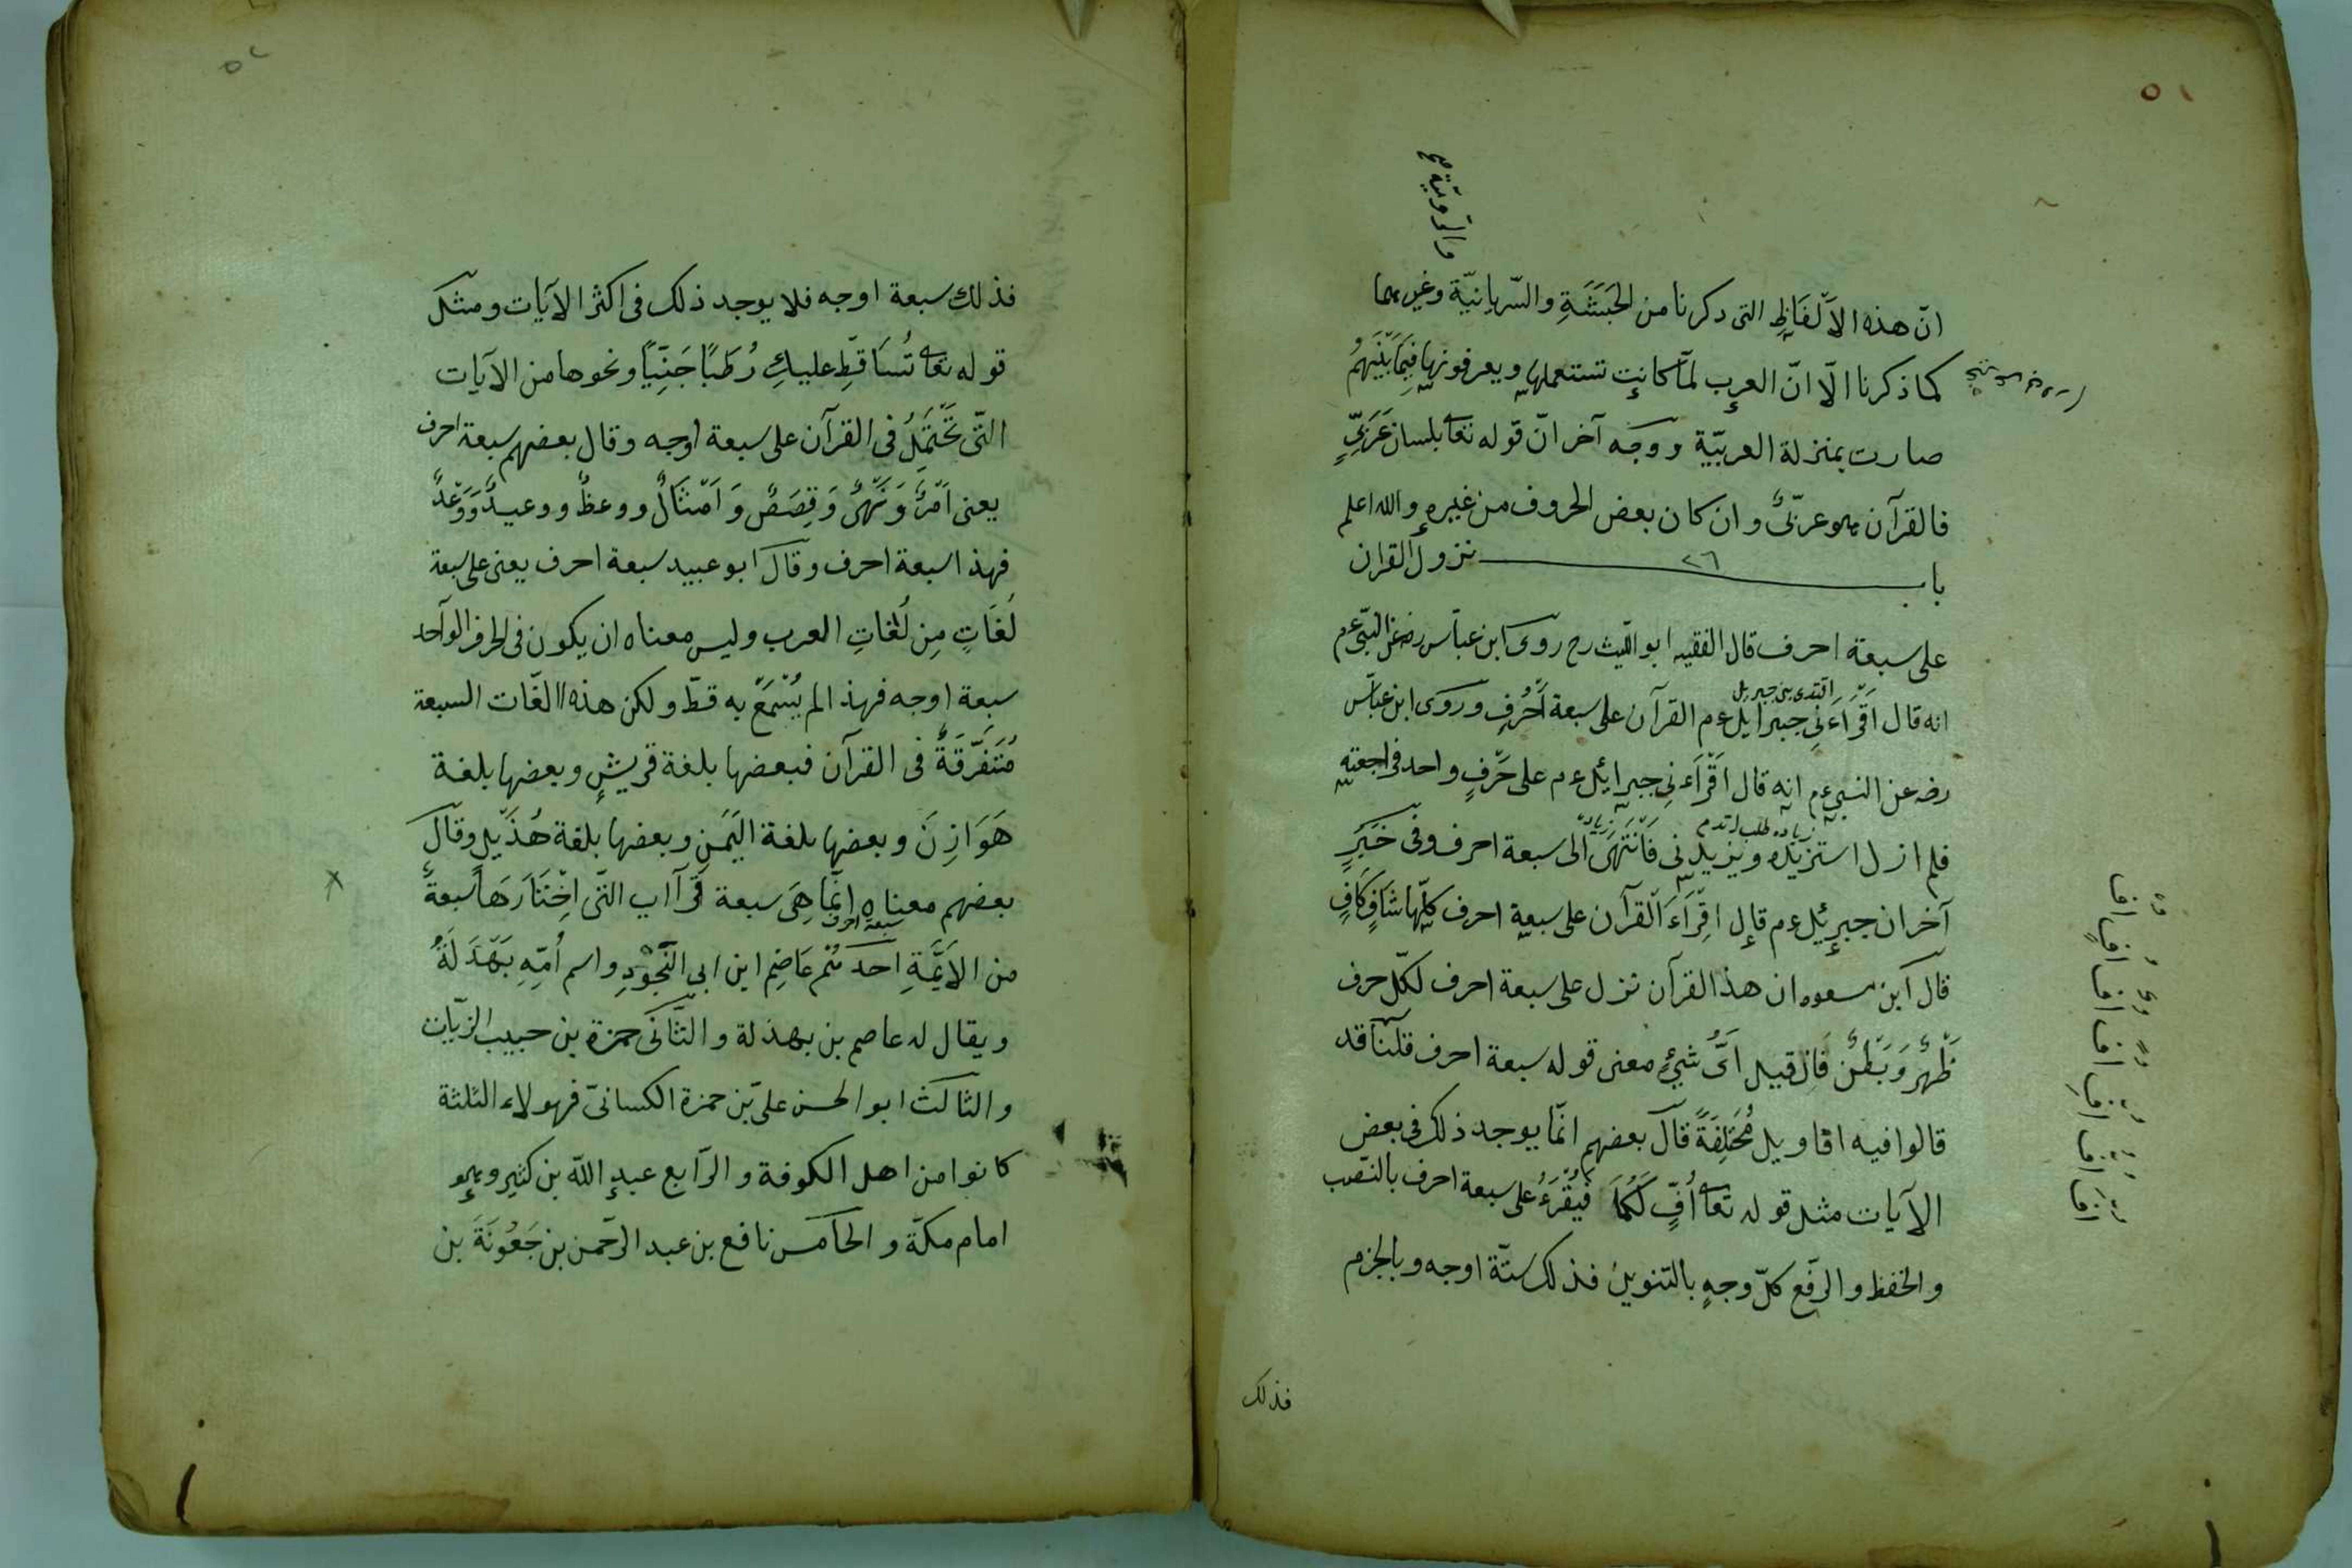 ٥١
والروميّة صح
انّ هذه الاَلْفَاظِ التى ذكرنا من الحَبَشَةِ والسّريانيّة وغيرهما
كما ذكرنا الّا انّ العرب لمّا كانت تستعملها ويعرفونها فِيمَا بَيْنَهُمْ
صارت بمنزلة العربيّة ووجه آخر انّ قوله تعا بلسان عَرَبِىٍّ
فالقرآن هو عربّىٌ وان كان بعض الحروف من غيره والله اعلم
باب ٢٦ نزول القران
على سبعة احرف قال الفقيه ابو اللّيث رح روى ابن عبّاس رضه عن النّبىّ عم
انه قال اَقْرَاَءَنِى جبرَائيل عم القرآن على سبعة اَحْرُفٍ وروَى ابن عبّاس
رضه عن النبى عم انه قال اَقْرَاَءنِى جبرائيل عم على حَرْفٍ واحد فراجعته
فلم ازل استزيده ويزيدنى فَانْتَهَى الى سبعة احرف وفى خَبَرٍ
آخر ان جبرئيل عم قال اِقْرَاَءَ القرآن على سبعة احرف كلّها شَافٍ كَافٍ
قال ابن مسعود ان هذا القرآن نزل على سبعة احرف لكلّ حرف
ظَهْرٌ وَبَطْنٌ فَان قيل اىّ شىءٍ معنى قوله سبعة احرف قلنا قد
قالوا فيه اقاويل مُخْتَلِفَةً قال بعضهم انّما يوجد ذلك فى بعض
الآيات مثل قوله تعا اُفٍّ لَكُمَا فَيُقْرَءُ على سبعة احرف بالنّصب
والخفظ والرّفع كلّ وجهٍ بالتنوين فذلك ستّة اوجه وبالجزم
فذلك
٥٢
فذلك سبعة اوجه فلا يوجد ذلك فى اكثر الآيات ومثل
قوله تعا تُسَاقِطِ عليكِ رُطَبًا جَنِيًّا ونحوها من الآيات
التّى تَحْتَمِلُ فى القرآن على سبعة اوجه وقال بعضهم سبعة احرف
يعنى اَمْرٌ وَنَهْىٌ وَقِصَصٌ وَاَمْثَالٌ ووعظٌ ووعيدٌ وَوَعْدٌ
فهذا سبعة احرف وقال ابو عبيد سبعة احرف يعنى على سبعة
لُغَاتٍ مِن لُغَاتِ العرب وليس معناه ان يكون فى الحرف الواحد
سبعة اوجه فهذا لم يُسْمَعْ به قطّ ولكن هذه الغّات السبعة
مُتَفَرِّقَةٌ فى القرآن فبعضها بلغة قريشٍ وبعضها بلغة
هَوَازِنَ وبعضها بلغة اليَمَنِ وبعضها بلغة هُذَيْلٍ وقال
بعضهم معناه انّما هِىَ سبعة قرآاب التّى اِخْتَارَهَا سبعةٌ
سبعة احرف
من الاَئِمَّةِ احدهم عَاصِم ابن ابى النَّجُوْدِ واسم اُمِّهِ بَهْدَلَةُ
ويقال له عاصم بن بهدلة والثّانى حمزة بن حبيب الزيّات
والثالث ابو الحسن علىّ بن حمزة الكسائىّ فهولاء الثلثة
كانوا من اهل الكوفة والرّابع عبد اللّه بن كثير وهو
امام مكّة والخامس نافع بن عبد الرّحمن بن جَعُونَةَ بن